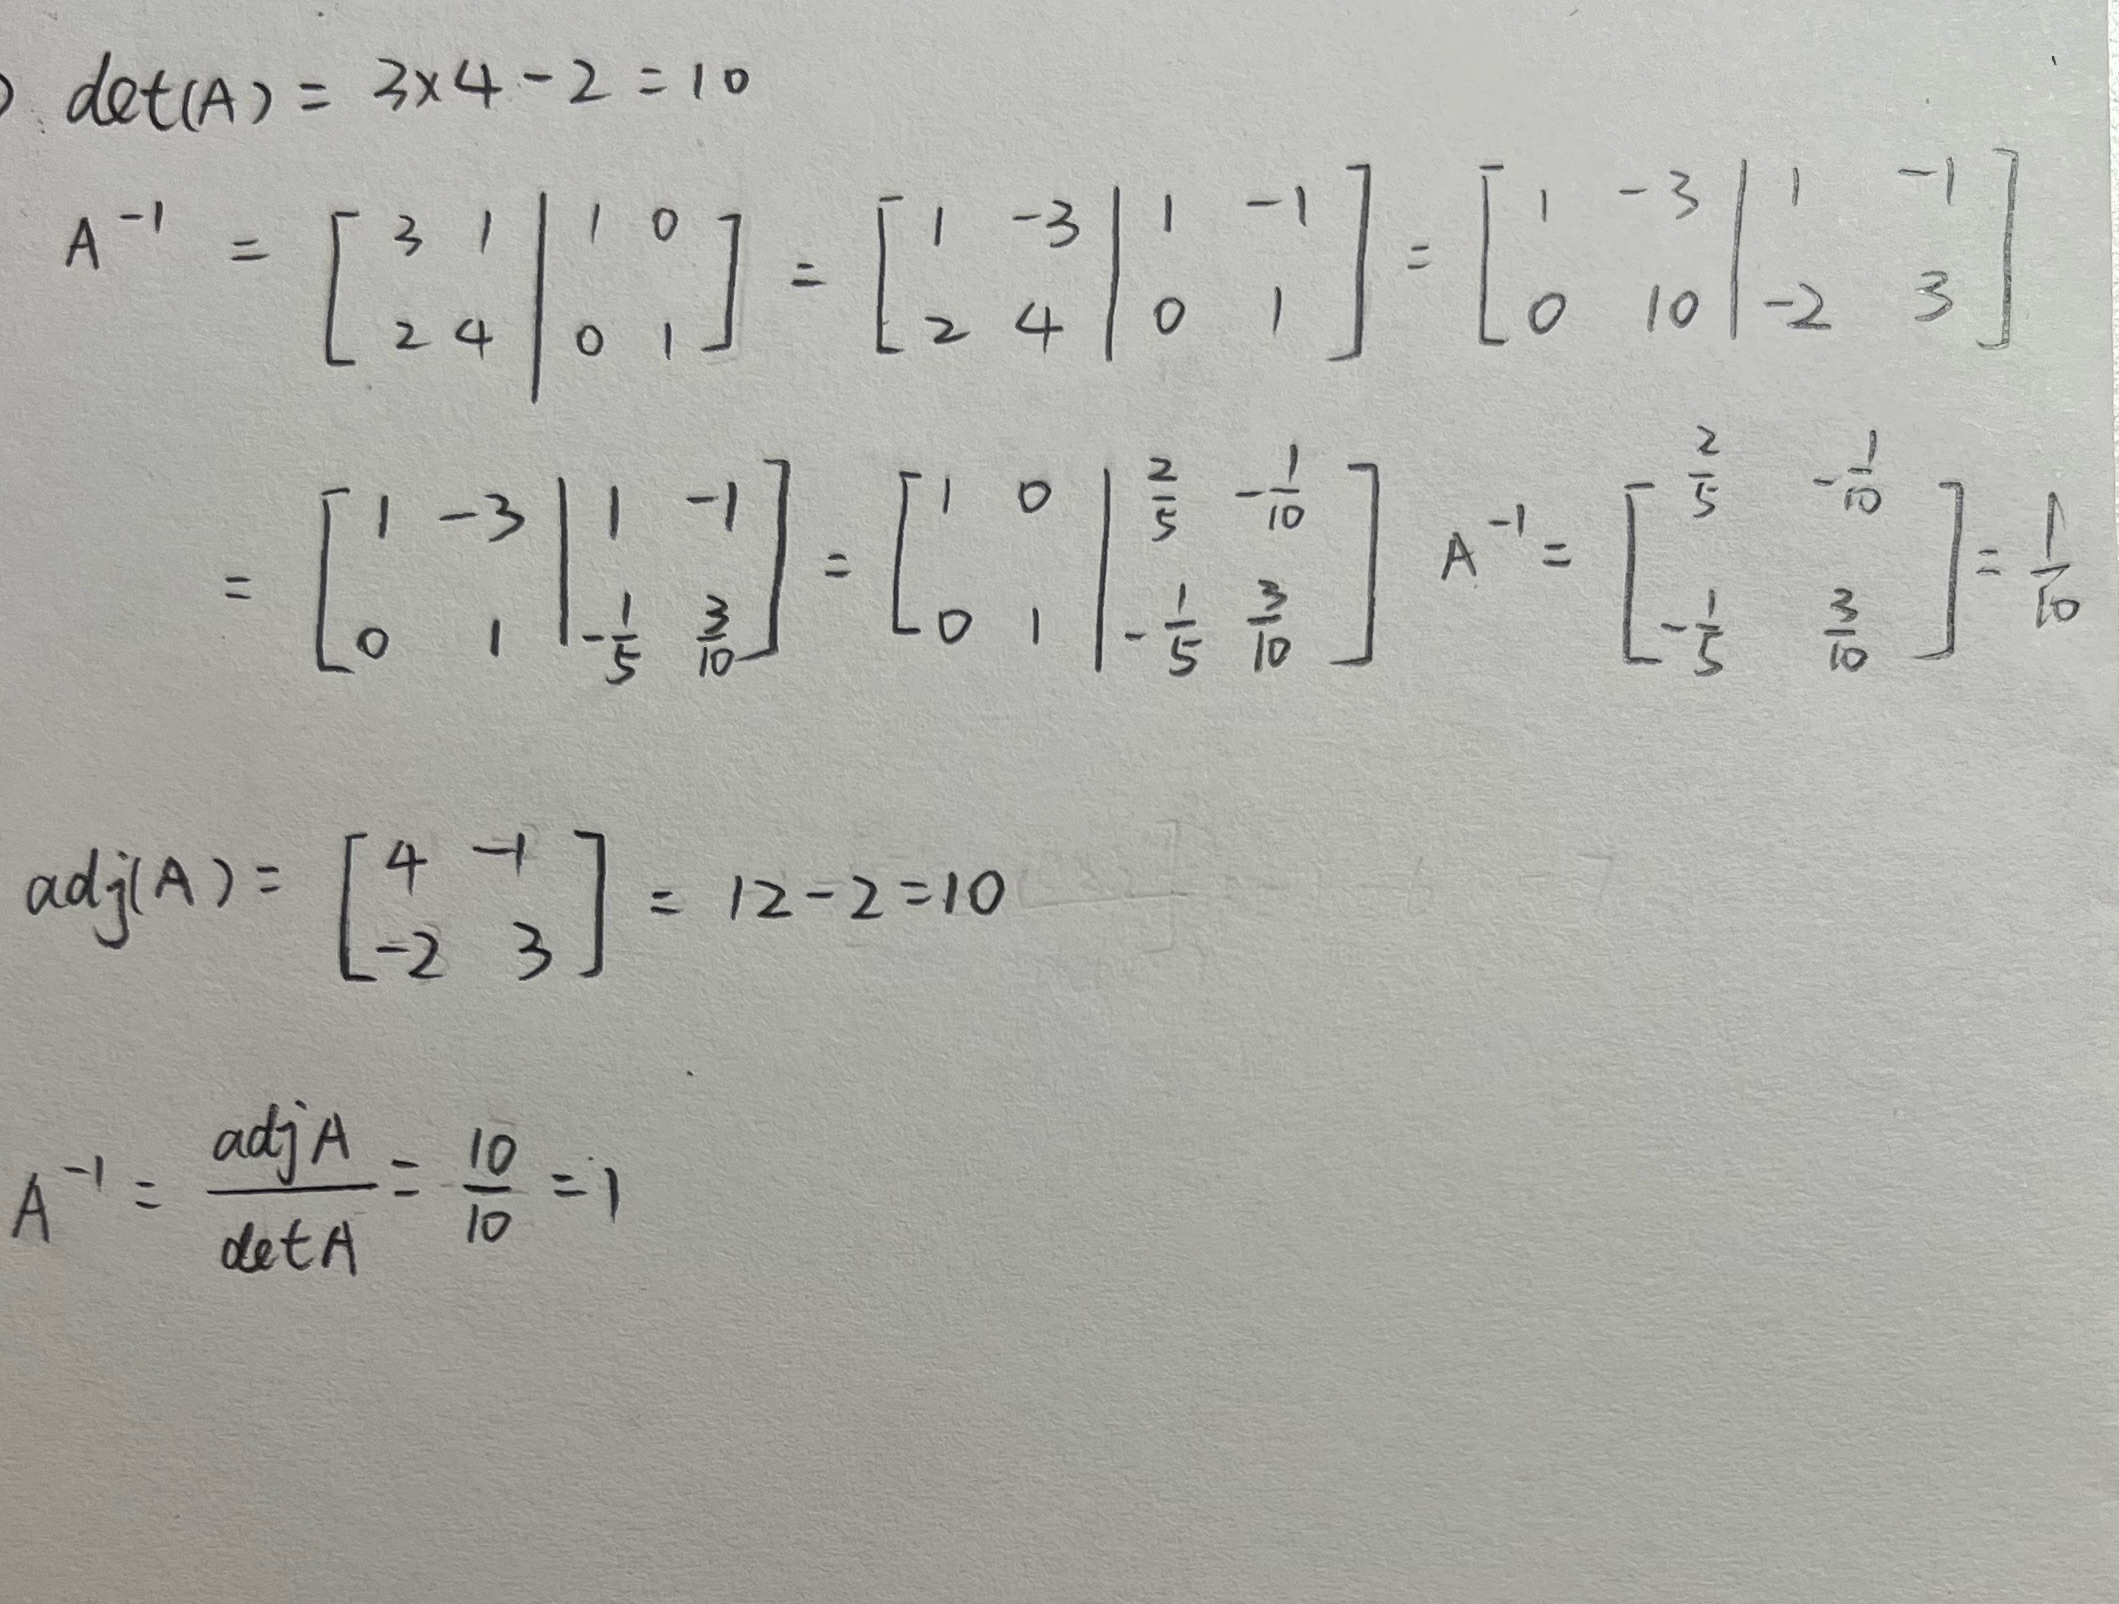 det(A) = 3×4 - 2 = 10
A⁻¹ = [ 3 1 | 1 0 ; 2 4 | 0 1 ] = [ 1 -3 | 1 -1 ; 2 4 | 0 1 ] = [ 1 -3 | 1 -1 ; 0 10 | -2 3 ]
= [ 1 -3 | 1 -1 ; 0 1 | -1/5 3/10 ] = [ 1 0 | 2/5 -1/10 ; 0 1 | -1/5 3/10 ] A⁻¹ = [ 2/5 -1/10 ; -1/5 3/10 ] = 1/10
adj(A) = [ 4 -1 ; -2 3 ] = 12 - 2 = 10
A⁻¹ = adj A / det A = 10/10 = 1